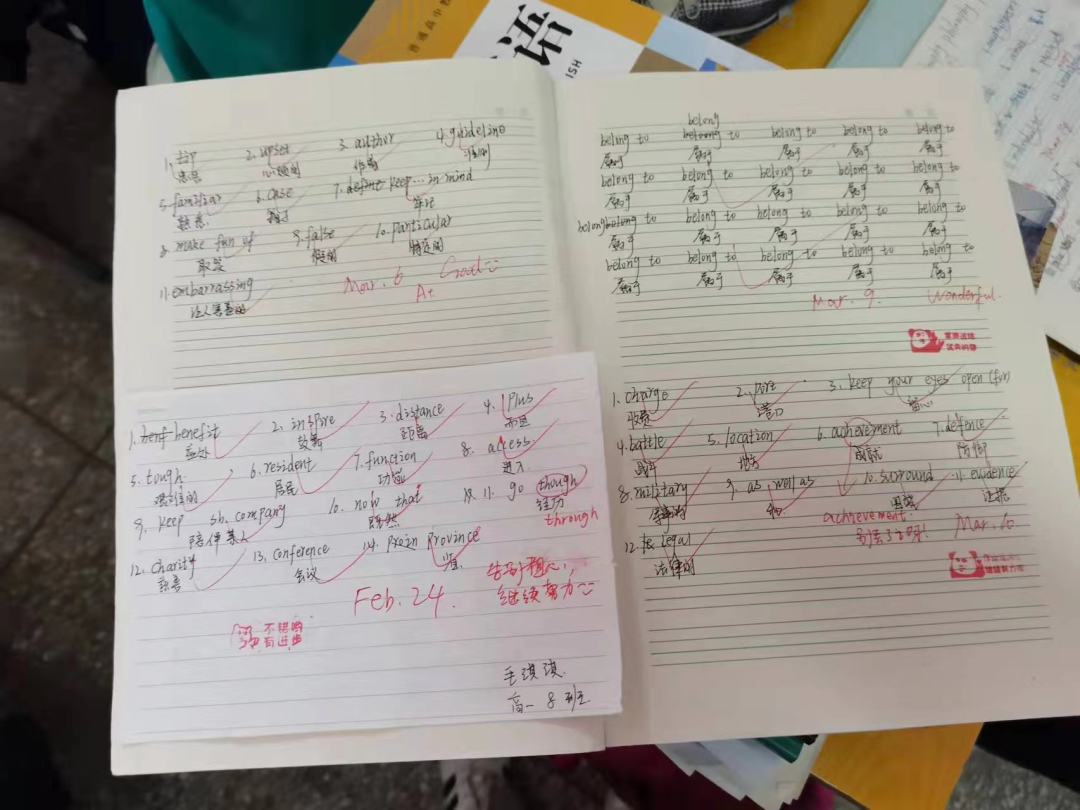 语
普通高中教
1. tip 2. upset 3. author 4. guideline
心烦的 作者 准则
5. familiar 6. case 7. keep... in mind
熟悉 牢记
8. make fun of 9. false 10. particular
取笑 假的 特定的
11. embarrassing
Mar. 6 Good
A+
1. benefit 2. inspire 3. distance 4. plus
益处 鼓舞 距离 而且
5. tough 6. resident 7. function 8. access
困难的 居民 功能 进入
9. keep sb. company 10. now that 11. go though
陪伴某人 既然 经历
through
12. charity 13. conference 14. province
慈善 会议 省
Feb. 24.
继续努力
不错哟
有进步
毛琪琪
高一 8班
belong
belong to to belong to belong to belong to
属于 属于 属于 属于 属于
belong to belong to belong to belong to belong to
属于 属于 属于 属于 属于
belong to belong to belong to belong to
属于 属于 属于 属于 属于
belong to belong to belong to belong to belong to
属于 属于 属于 属于 属于
Mar. 9. Wonderful.
1. charge 2. pore 3. keep your eyes open (for)
收费 留心
4. battle 5. location 6. acheivement 7. defence
战斗 地方 成就 防御
8. military 9. as well as 10. surround 11. evidence
军事的 和 围绕 证据
achievement
Mar. 10
12. legal
法律的